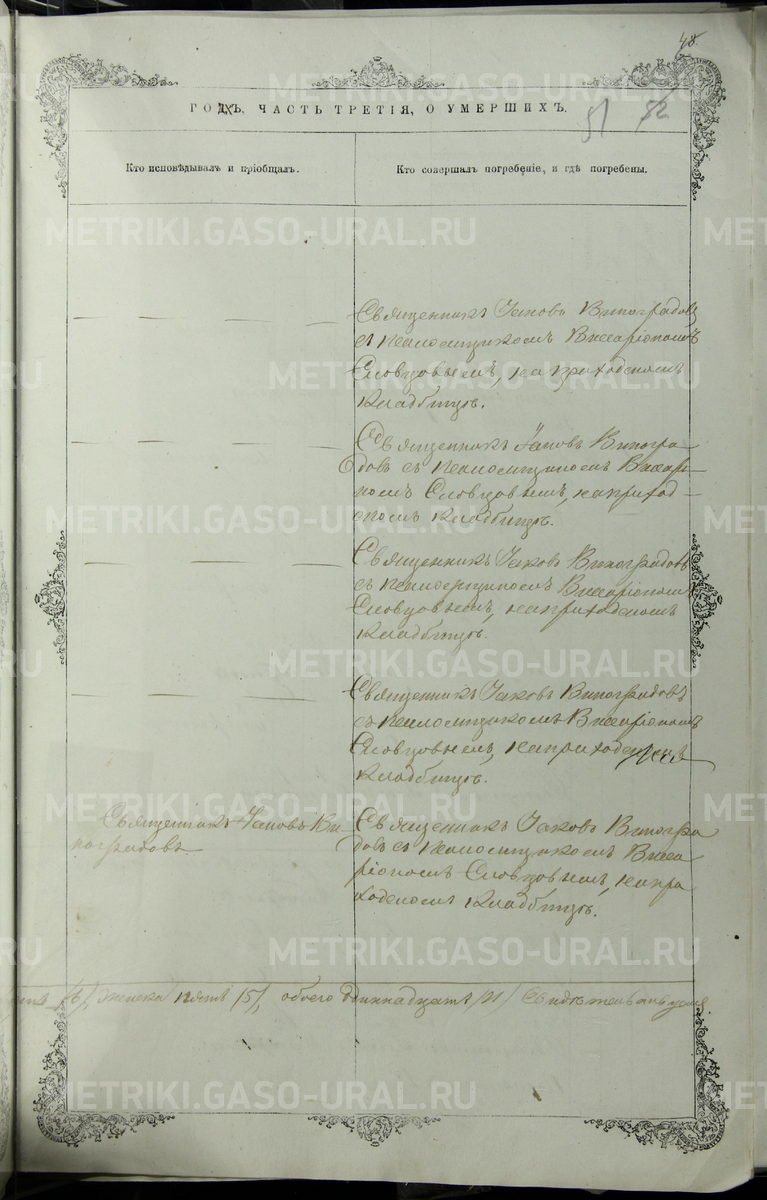 48
ГОДЪ, ЧАСТЬ ТРЕТІЯ, О УМЕРШИХЪ.
51 52
Кто исповѣдывалъ и пріобщалъ.
Кто совершалъ погребеніе, и гдѣ погребены.
Священникъ Іаковъ Виноградовъ
съ псаломщикомъ Виссаріономъ
Словцовымъ, на приходскомъ
кладбищѣ.
Священникъ Іаковъ Виногра-
довъ съ псаломщикомъ Виссаріо-
номъ Словцовымъ, на приход-
скомъ кладбищѣ.
Священникъ Іаковъ Виноградовъ
съ псаломщикомъ Виссаріономъ
Словцовымъ, на приходскомъ
кладбищѣ.
Священникъ Іаковъ Виноградовъ
съ псаломщикомъ Виссаріономъ
Словцовымъ, на приходскомъ
кладбищѣ.
Священникъ Іаковъ Ви-
ноградовъ
Священникъ Іаковъ Виногра
довъ съ псаломщикомъ Висса
ріономъ Словцовымъ, на при
ходскомъ кладбищѣ.
/6/, женска пять /5/, обоего одиннадцать /11/
METRIKI.GASO-URAL.RU